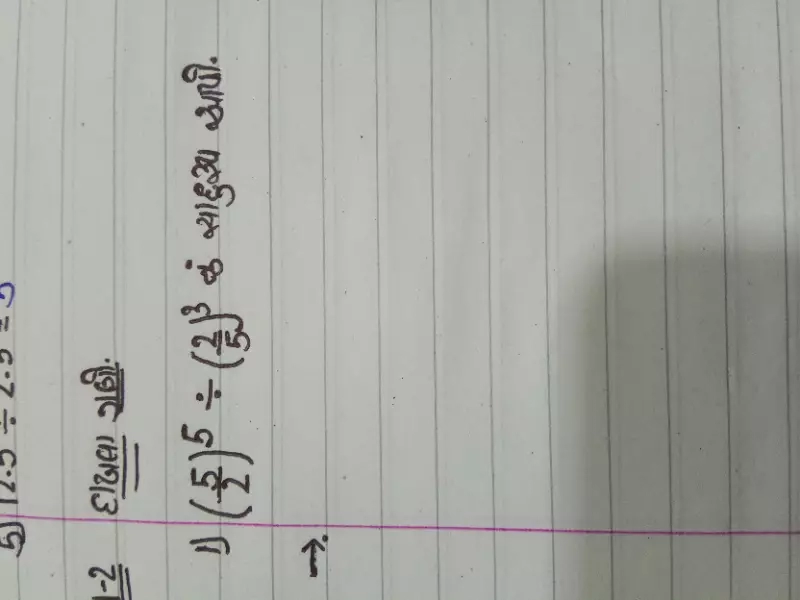 5) 12.5 ÷ 2.5 = 5
1-2 દાખલા ગણો.
1) (5/2)^5 ÷ (2/5)^3 નું સાદુરૂપ આપો.
→.